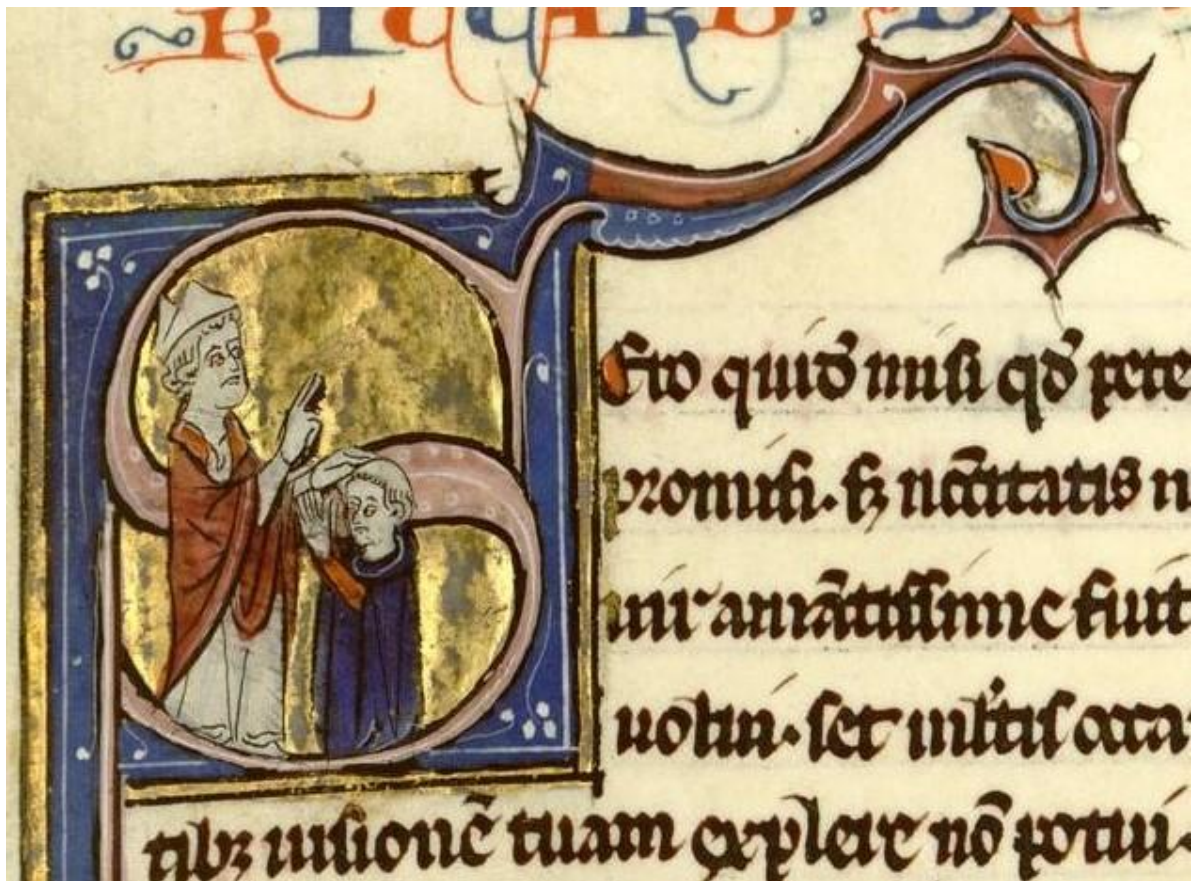 RICCARD. DE
SEro quid̄ misi qđ pete
promisi. sꝫ nc̄citatis n
uir amātissime fuit
uolui. set ml̓tis occa
tibꝫ iusionē tuam explere nō potui.